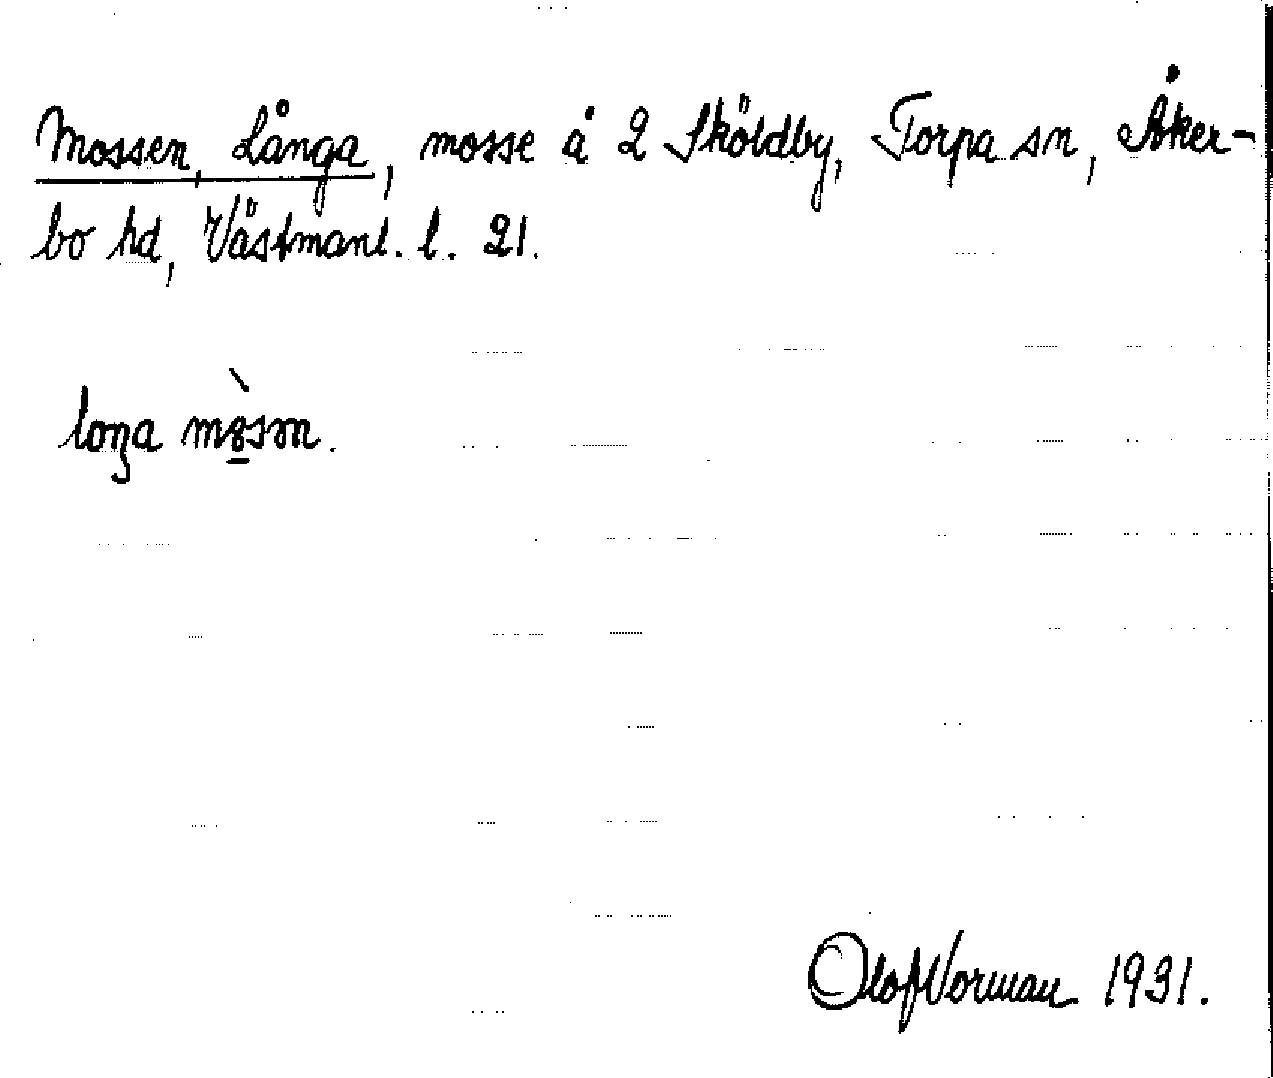 Mossen, Långa, mosse å 2 Sköldby, Torpa sn, Åker-
bo hd, Västmanl. l. 21.
loŋa mò̱sən.
Olof Norman 1931.